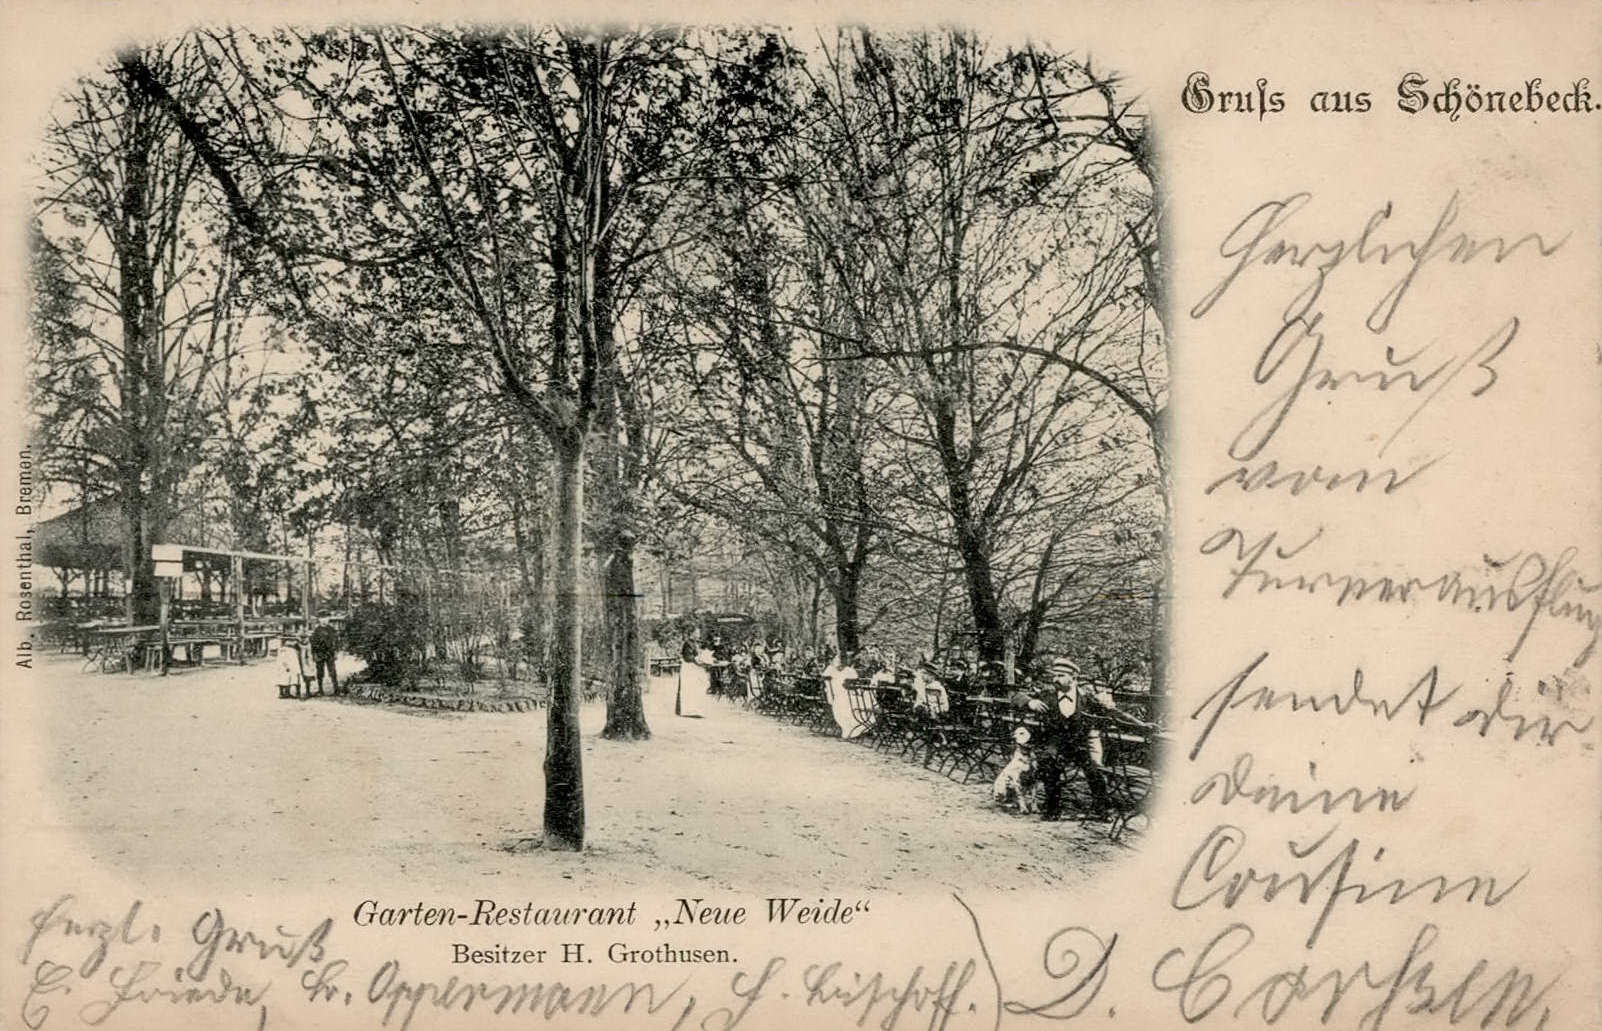 Gruſs aus Schönebeck.
Herzlichen
Gruß
vom
Turnerausflug
sendet dir
deine
Cousine
D.
Alb. Rosenthal, Bremen.
Garten-Restaurant „Neue Weide“
Besitzer H. Grothusen.
Herzl. Gruß
E. Friede, Br. Oppermann, H. Bischoff.